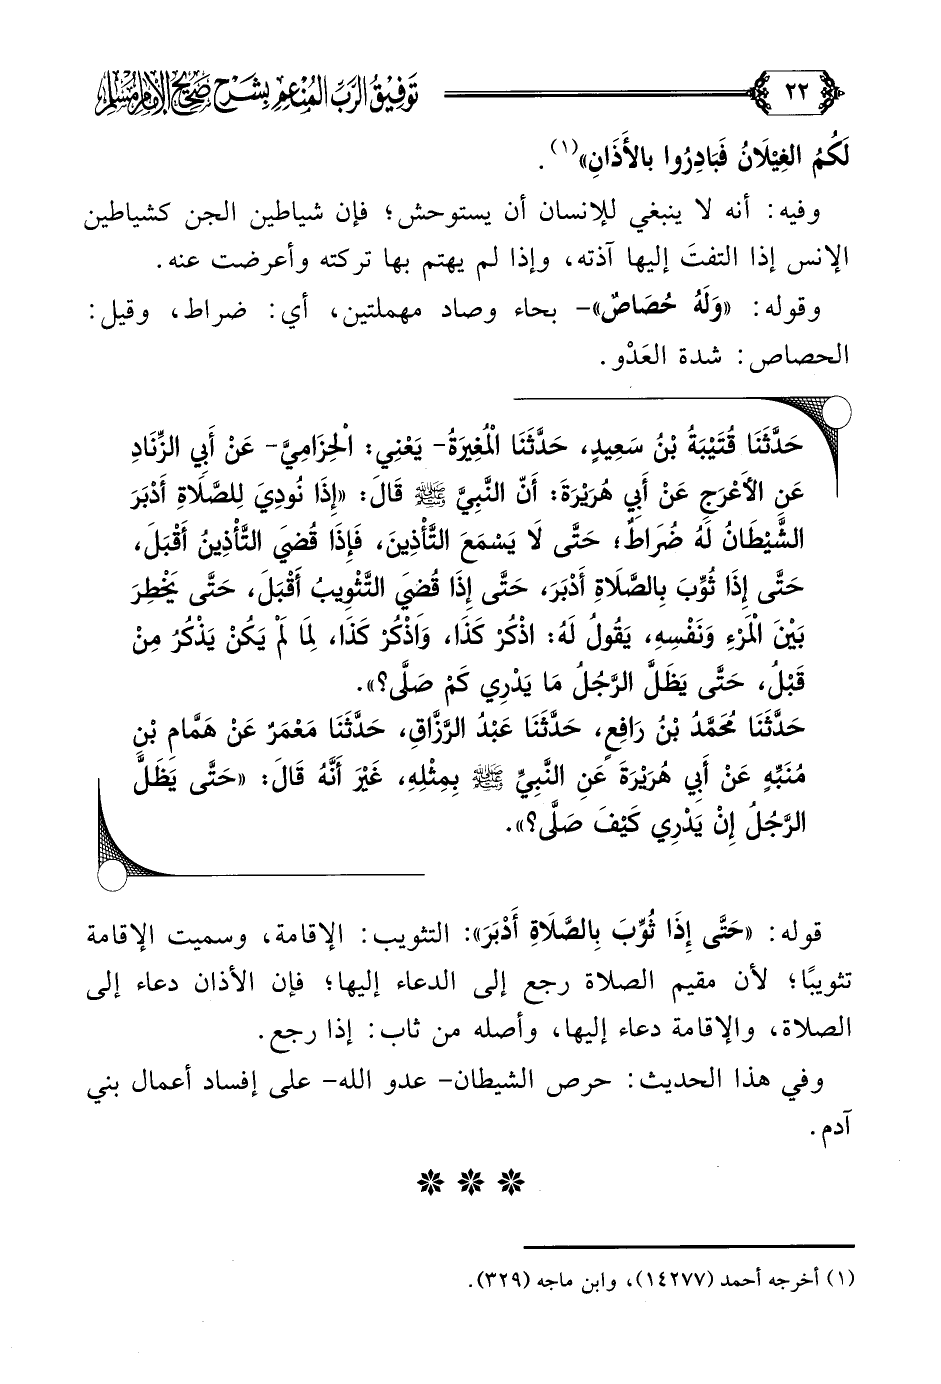 ٢٢
توفيق الرب المنعم بشرح صحيح الإمام مسلم
لَكُمُ الغِيْلَانُ فَبَادِرُوا بالأَذَانِ»(١).
وفيه: أنه لا ينبغي للإنسان أن يستوحش؛ فإن شياطين الجن كشياطين
الإنس إذا التفتَ إليها آذته، وإذا لم يهتم بها تركته وأعرضت عنه.
وقوله: «وَلَهُ حُصَاصٌ»- بحاء وصاد مهملتين، أي: ضراط، وقيل:
الحصاص: شدة العَدْو.
حَدَّثَنَا قُتَيْبَةُ بْنُ سَعِيدٍ، حَدَّثَنَا الْمُغِيرَةُ- يَعْنِي: الْحِزَامِيَّ- عَنْ أَبِي الزِّنَادِ
عَنِ الأَعْرَجِ عَنْ أَبِي هُرَيْرَةَ: أَنَّ النَّبِيَّ ﷺ قَالَ: «إِذَا نُودِيَ لِلصَّلَاةِ أَدْبَرَ
الشَّيْطَانُ لَهُ ضُرَاطٌ؛ حَتَّى لَا يَسْمَعَ التَّأْذِينَ، فَإِذَا قُضِيَ التَّأْذِينُ أَقْبَلَ،
حَتَّى إِذَا ثُوِّبَ بِالصَّلَاةِ أَدْبَرَ، حَتَّى إِذَا قُضِيَ التَّثْوِيبُ أَقْبَلَ، حَتَّى يَخْطِرَ
بَيْنَ الْمَرْءِ وَنَفْسِهِ، يَقُولُ لَهُ: اذْكُرْ كَذَا، وَاذْكُرْ كَذَا، لِمَا لَمْ يَكُنْ يَذْكُرُ مِنْ
قَبْلُ، حَتَّى يَظَلَّ الرَّجُلُ مَا يَدْرِي كَمْ صَلَّى؟».
حَدَّثَنَا مُحَمَّدُ بْنُ رَافِعٍ، حَدَّثَنَا عَبْدُ الرَّزَّاقِ، حَدَّثَنَا مَعْمَرٌ عَنْ هَمَّامِ بْنِ
مُنَبِّهٍ عَنْ أَبِي هُرَيْرَةَ عَنِ النَّبِيِّ ﷺ بِمِثْلِهِ، غَيْرَ أَنَّهُ قَالَ: «حَتَّى يَظَلَّ
الرَّجُلُ إِنْ يَدْرِي كَيْفَ صَلَّى؟».
قوله: «حَتَّى إِذَا ثُوِّبَ بِالصَّلَاةِ أَدْبَرَ»: التثويب: الإقامة، وسميت الإقامة
تثويبًا؛ لأن مقيم الصلاة رجع إلى الدعاء إليها؛ فإن الأذان دعاء إلى
الصلاة، والإقامة دعاء إليها، وأصله من ثاب: إذا رجع.
وفي هذا الحديث: حرص الشيطان- عدو الله- على إفساد أعمال بني
آدم.
(١) أخرجه أحمد (١٤٢٧٧)، وابن ماجه (٣٢٩).